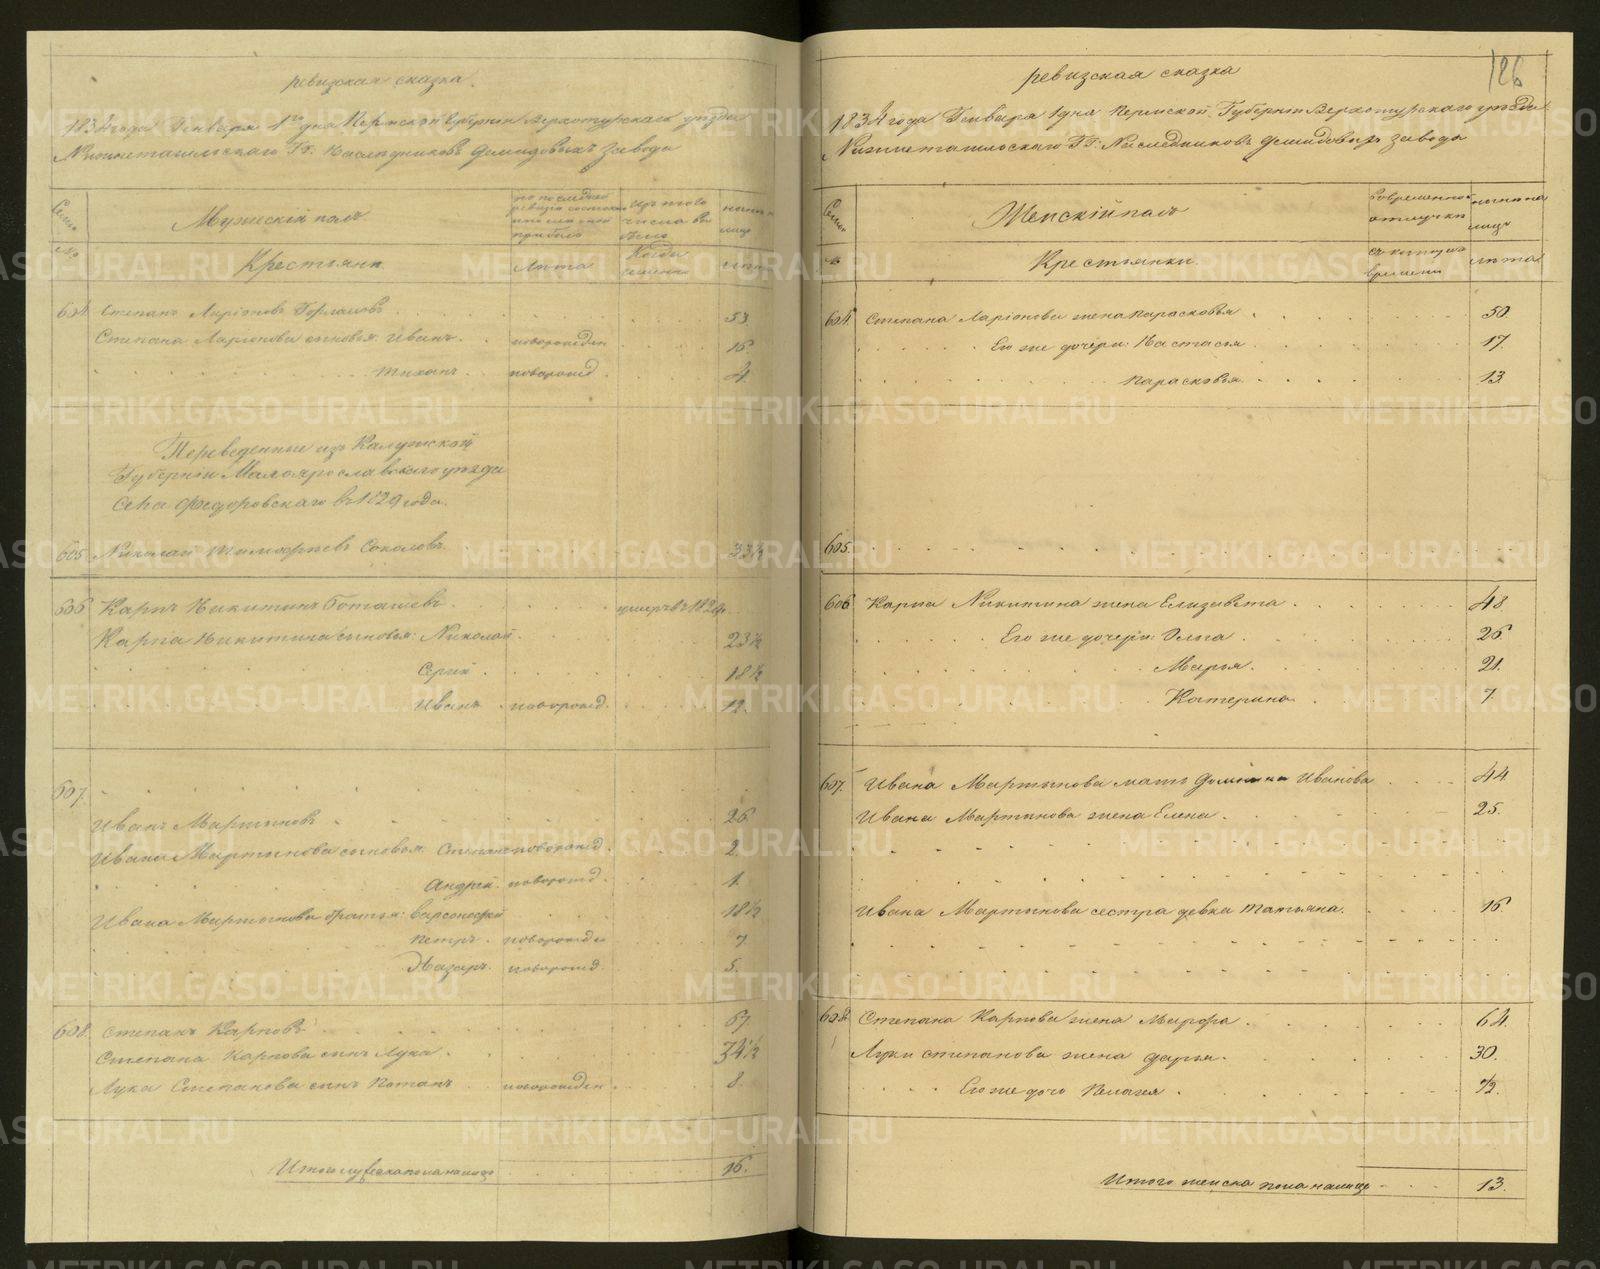 126
ревизская сказка
1834 года Генваря 1го дня Пермской Губернии Верхотурскаго уѣзда
Нижнетагильскаго ГГ: Наслѣдниковъ Демидовыхъ завода
Семьи
Мужескій полъ
по послѣдней ревизіи состояло или послѣ прибыло
Изъ того числа выбыло
нынѣ на лицо
№
Крестьяне
Лѣта
Когда именно
лѣта
604 Степанъ Ларіоновъ 53.
Степана Ларіонова сыновья: Иванъ новорожден 15
Тиханъ новорожд. 4
Переведенные изъ Калужской
Губерніи Малоярославскаго уѣзда
Села Федоровскаго въ 1829 года.
605 Николай Тимофѣевъ Соколовъ 33½
606 Карпъ Никитинъ умеръ въ 182
Карпа Никитина сыновья: Николай 23½
Сергій 18½
Иванъ новорожд. 12
607.
Иванъ Мартыновъ 26
Ивана Мартынова сыновья: Степанъ новорожд. 2.
Андрей новорожд. 1.
Ивана Мартынова братья: Варсонофей 18½
Петръ новорожден 7
Назаръ новорожд. 5.
608. Степанъ Карповъ 67
Степана Карпова сынъ Лука 34½
Лука Степанова сынъ Потапъ новорожден 8.
Итого мужеска пола на лицо 16.
ревизская сказка
1834 года Генваря 1 дня Пермской Губерніи Верхотурскаго уѣзда
Нижнетагильскаго ГГ: Наслѣдниковъ Демидовыхъ завода
Семьи
Женскій полъ
Во временной отлучки
нынѣ на лицо
№
Крестьянки
съ котораго времени
лѣта
604. Степана Ларіонова жена Парасковья 50.
Его же дочери: Настасья 17.
Парасковья 13.
605.
606 Карпа Никитина жена Елизавета 48.
Его же дочери: Ольга 26
Марья 21.
Катерина 7.
607. Ивана Мартынова мать Домна Иванова 44.
Ивана Мартынова жена Елена 25.
Ивана Мартынова сестра девка Татьяна 16
608. Степана Карпова жена Марфа 64.
Луки Степанова жена Дарья 30.
Его же дочь Пелагея ½.
Итого женска пола на лицо 13.
METRIKI.GASO-URAL.RU